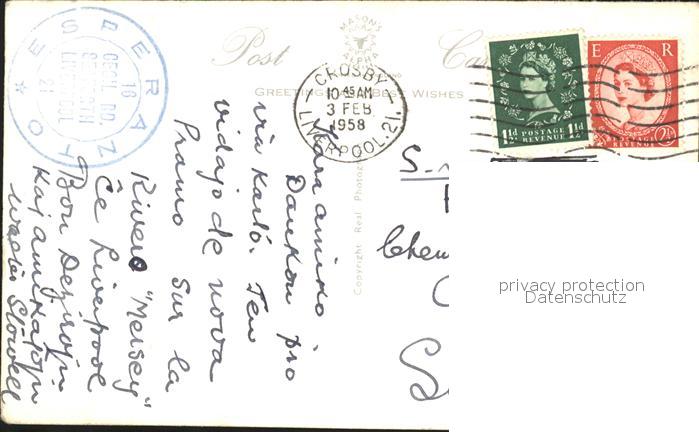 ESPERANTO
16
CECIL RD.
LIVERPOOL
21
Post Card
MASON'S
ALPHA
GREETINGS BEST WISHES
CROSBY
10 45 AM
3 FEB
1958
LIVERPOOL. 21.
1½d POSTAGE REVENUE 1½d
E R
POSTAGE REVENUE 2½d
Copyright Real Photog
Kara amiko
Dankon pro
via karto. Jen
vidajo de nova
Pramo sur la
Rivero "Mersey"
Ĉe Liverpool
Bon Deziroj
Kaj amike
Walter Stowell
S-r
privacy protection
Datenschutz